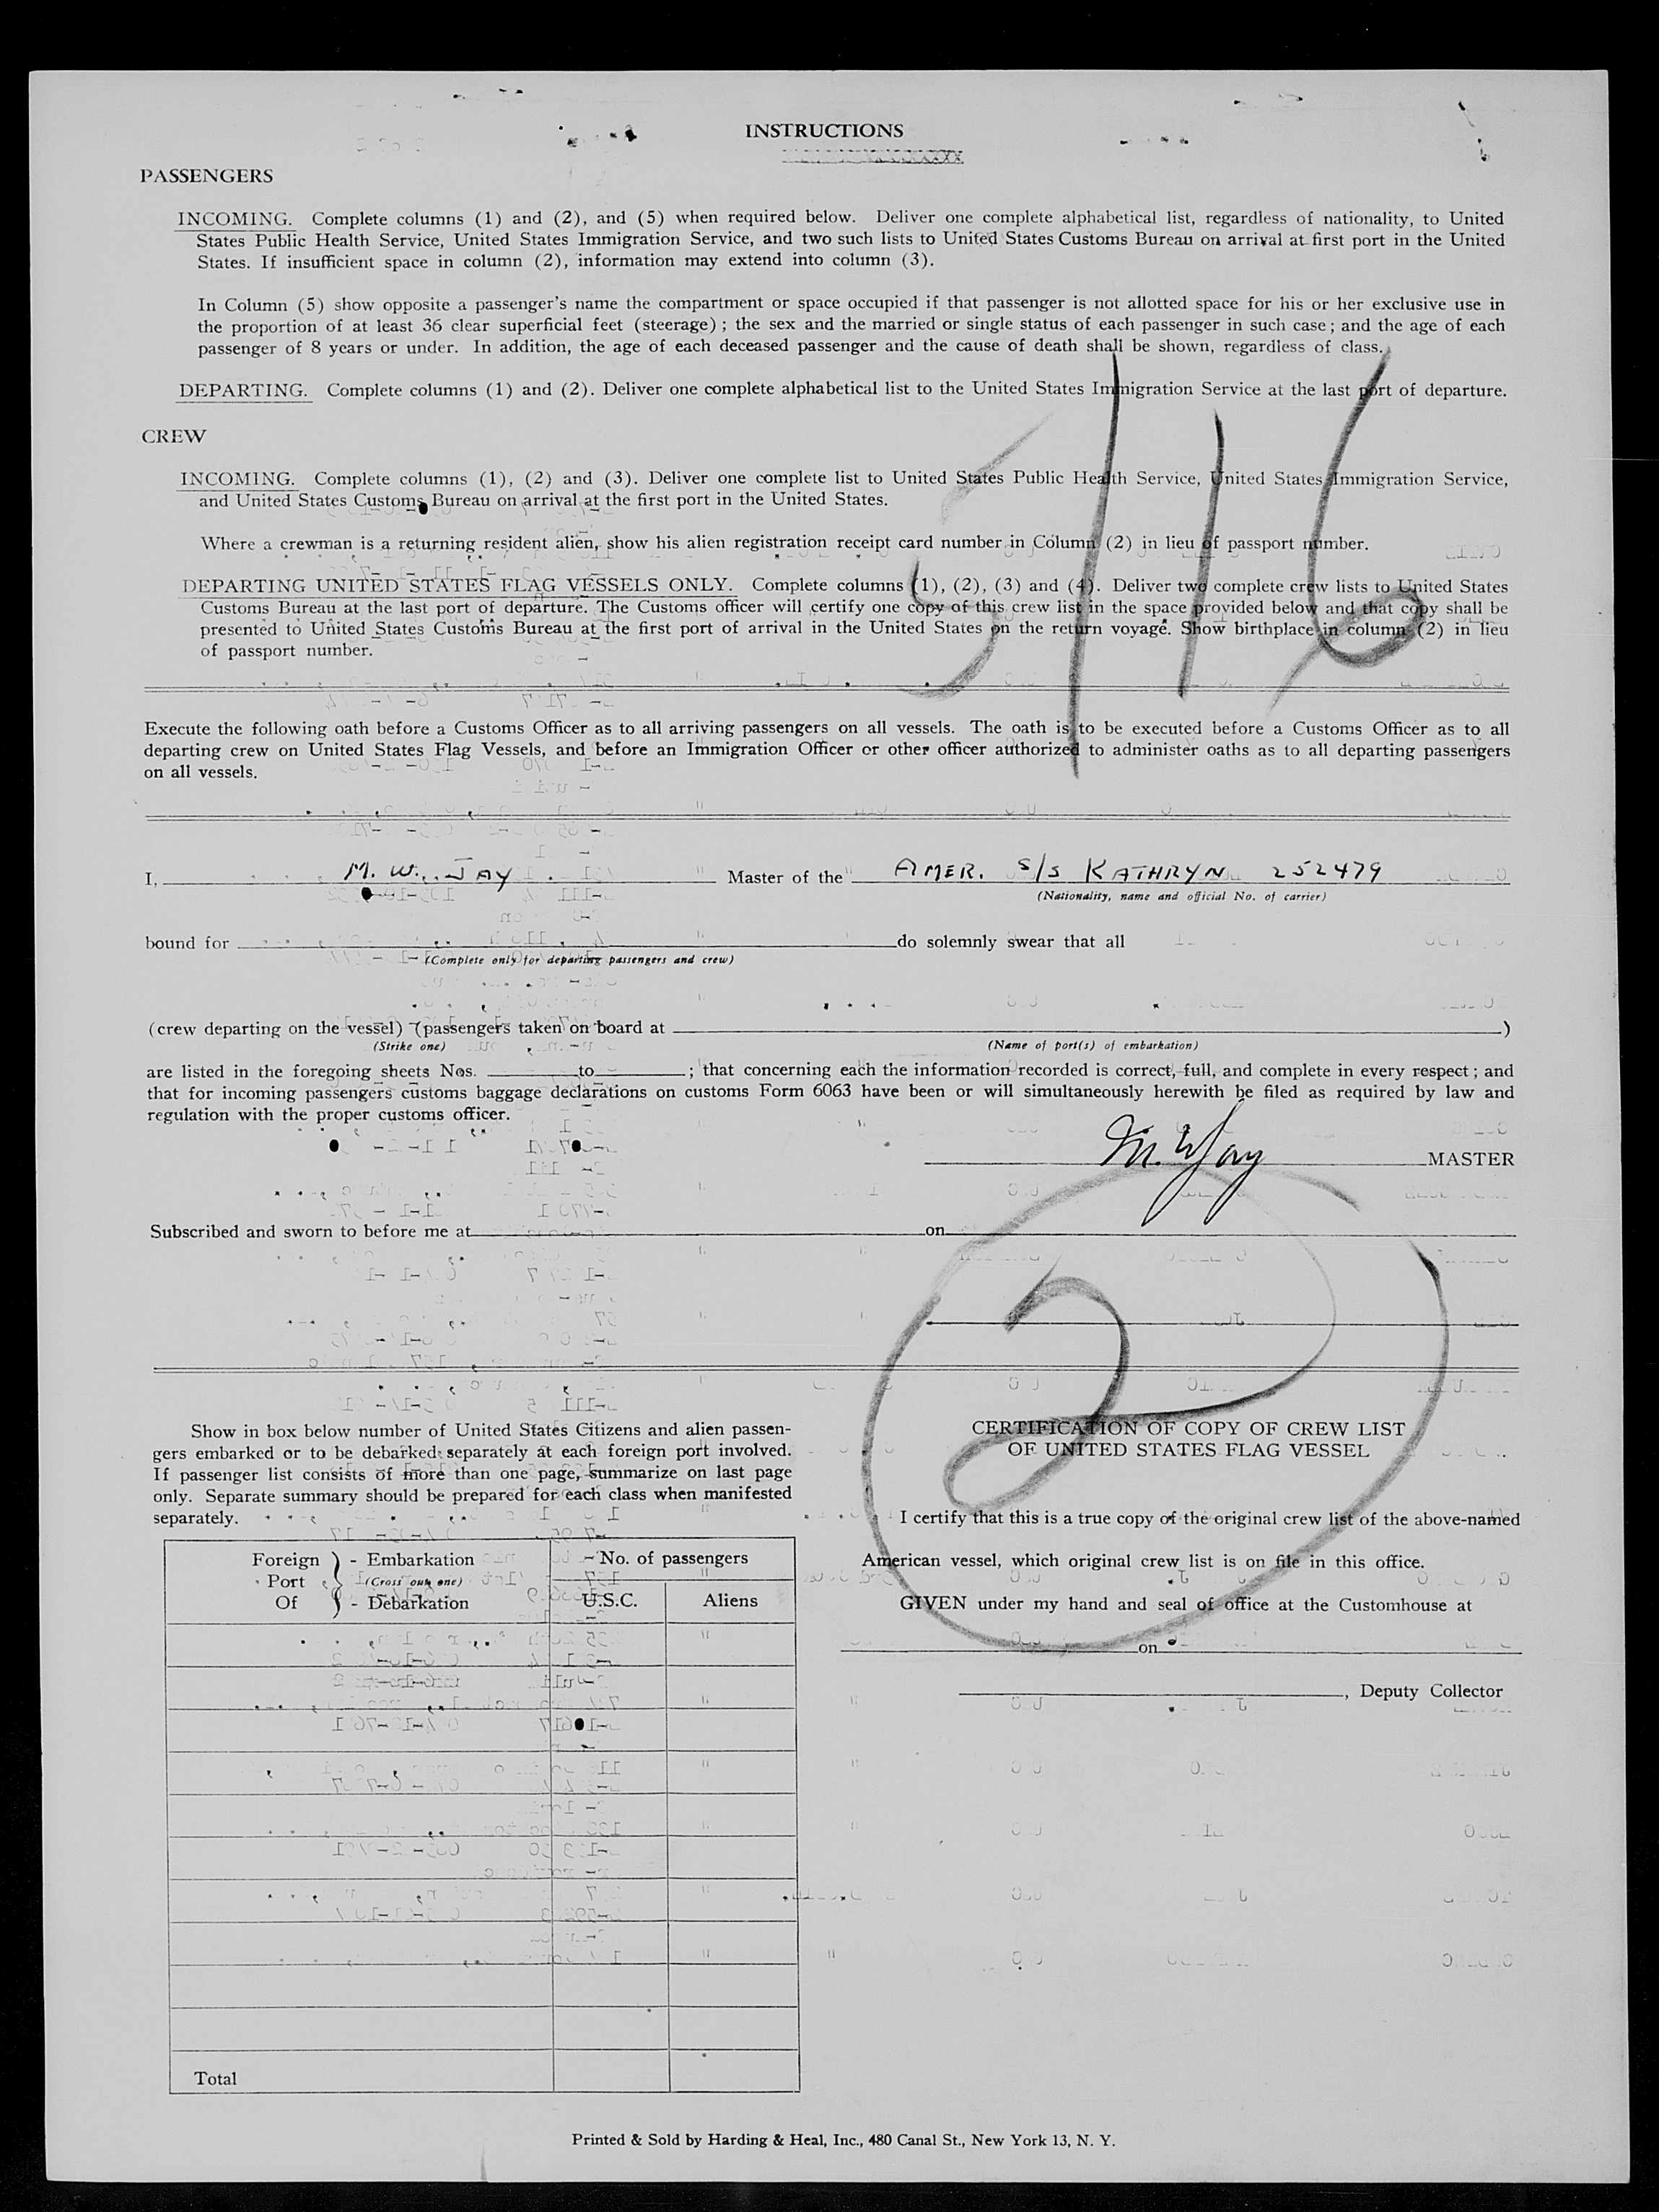 INSTRUCTIONS
PASSENGERS
INCOMING. Complete columns (1) and (2), and (5) when required below. Deliver one complete alphabetical list, regardless of nationality, to United
States Public Health Service, United States Immigration Service, and two such lists to United States Customs Bureau on arrival at first port in the United
States. If insufficient space in column (2), information may extend into column (3).
In Column (5) show opposite a passenger's name the compartment or space occupied if that passenger is not allotted space for his or her exclusive use in
the proportion of at least 36 clear superficial feet (steerage); the sex and the married or single status of each passenger in such case; and the age of each
passenger of 8 years or under. In addition, the age of each deceased passenger and the cause of death shall be shown, regardless of class.
DEPARTING. Complete columns (1) and (2). Deliver one complete alphabetical list to the United States Immigration Service at the last port of departure.
CREW
INCOMING. Complete columns (1), (2) and (3). Deliver one complete list to United States Public Health Service, United States Immigration Service,
and United States Customs Bureau on arrival at the first port in the United States.
Where a crewman is a returning resident alien, show his alien registration receipt card number in Column (2) in lieu of passport number.
DEPARTING UNITED STATES FLAG VESSELS ONLY. Complete columns (1), (2), (3) and (4). Deliver two complete crew lists to United States
Customs Bureau at the last port of departure. The Customs officer will certify one copy of this crew list in the space provided below and that copy shall be
presented to United States Customs Bureau at the first port of arrival in the United States on the return voyage. Show birthplace in column (2) in lieu
of passport number.
Execute the following oath before a Customs Officer as to all arriving passengers on all vessels. The oath is to be executed before a Customs Officer as to all
departing crew on United States Flag Vessels, and before an Immigration Officer or other officer authorized to administer oaths as to all departing passengers
on all vessels.
I, M. W. JAY Master of the AMER. S/S KATHRYN 252479
(Nationality, name and official No. of carrier)
bound for do solemnly swear that all
(Complete only for departing passengers and crew)
(crew departing on the vessel) (passengers taken on board at )
(Strike one) (Name of port(s) of embarkation)
are listed in the foregoing sheets Nos. to ; that concerning each the information recorded is correct, full, and complete in every respect; and
that for incoming passengers customs baggage declarations on customs Form 6063 have been or will simultaneously herewith be filed as required by law and
regulation with the proper customs officer.
M. W. Jay MASTER
Subscribed and sworn to before me at on
2
Show in box below number of United States Citizens and alien passen-
gers embarked or to be debarked separately at each foreign port involved.
If passenger list consists of more than one page, summarize on last page
only. Separate summary should be prepared for each class when manifested
separately.
Foreign Port Of } - Embarkation
(Cross out one)
- Debarkation
No. of passengers
U.S.C. Aliens
Total
CERTIFICATION OF COPY OF CREW LIST
OF UNITED STATES FLAG VESSEL
I certify that this is a true copy of the original crew list of the above-named
American vessel, which original crew list is on file in this office.
GIVEN under my hand and seal of office at the Customhouse at
on
, Deputy Collector
Printed & Sold by Harding & Heal, Inc., 480 Canal St., New York 13, N. Y.